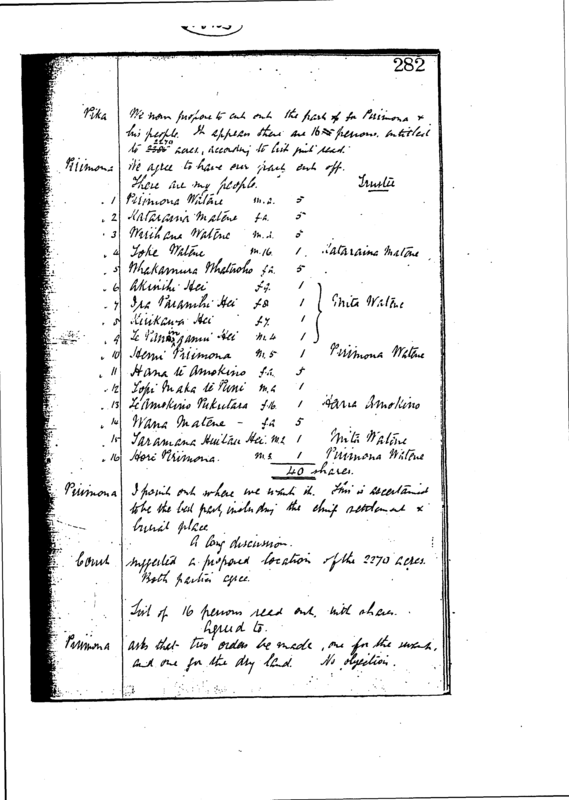 282
Pika We now propose to cut out the part of Pirimona &
his people. It appears there are 16 persons, entitled
to 2270 acres, according to list just read.
Pirimona We agree to have our part cut off.
These are my people. Trustee
1 Pirimona Watene m.a. 5
2 Kataraina Matene f.a. 5
3 Wirihana Watene m.a. 5
4 Toke Watene m.16. 1 Kataraina Matene
5 Whakamura f.a. 5
6 Akinihi Hei 1
7 Ira Hei f8. 1 Enita Watene
8 Hei f.7. 1
9 Hei m.4 1
10 Hemi Pirimona m.5 1 Pirimona Watene
11 Hana te Amokino f.a. 5
12 Topi Maka te Puni m.a 1
13 Te Amokino Pukutara f.16. 1 Hana Amokino
14 Wana Matene - f.a 5
15 Taramana Hei 1 Enita Watene
16 Hori Pirimona. 1 Pirimona Watene
40 shares.
Pirimona I point out where we want it. This is ascertained
to be the best part, including the chief settlement &
burial place
A long discussion.
Court suggested a proposed location of the 2270 acres.
Both parties agree.
List of 16 persons read out, with shares.
Agreed to.
Pirimona asks that two orders be made, one for the swamp,
and one for the dry land. No objection.